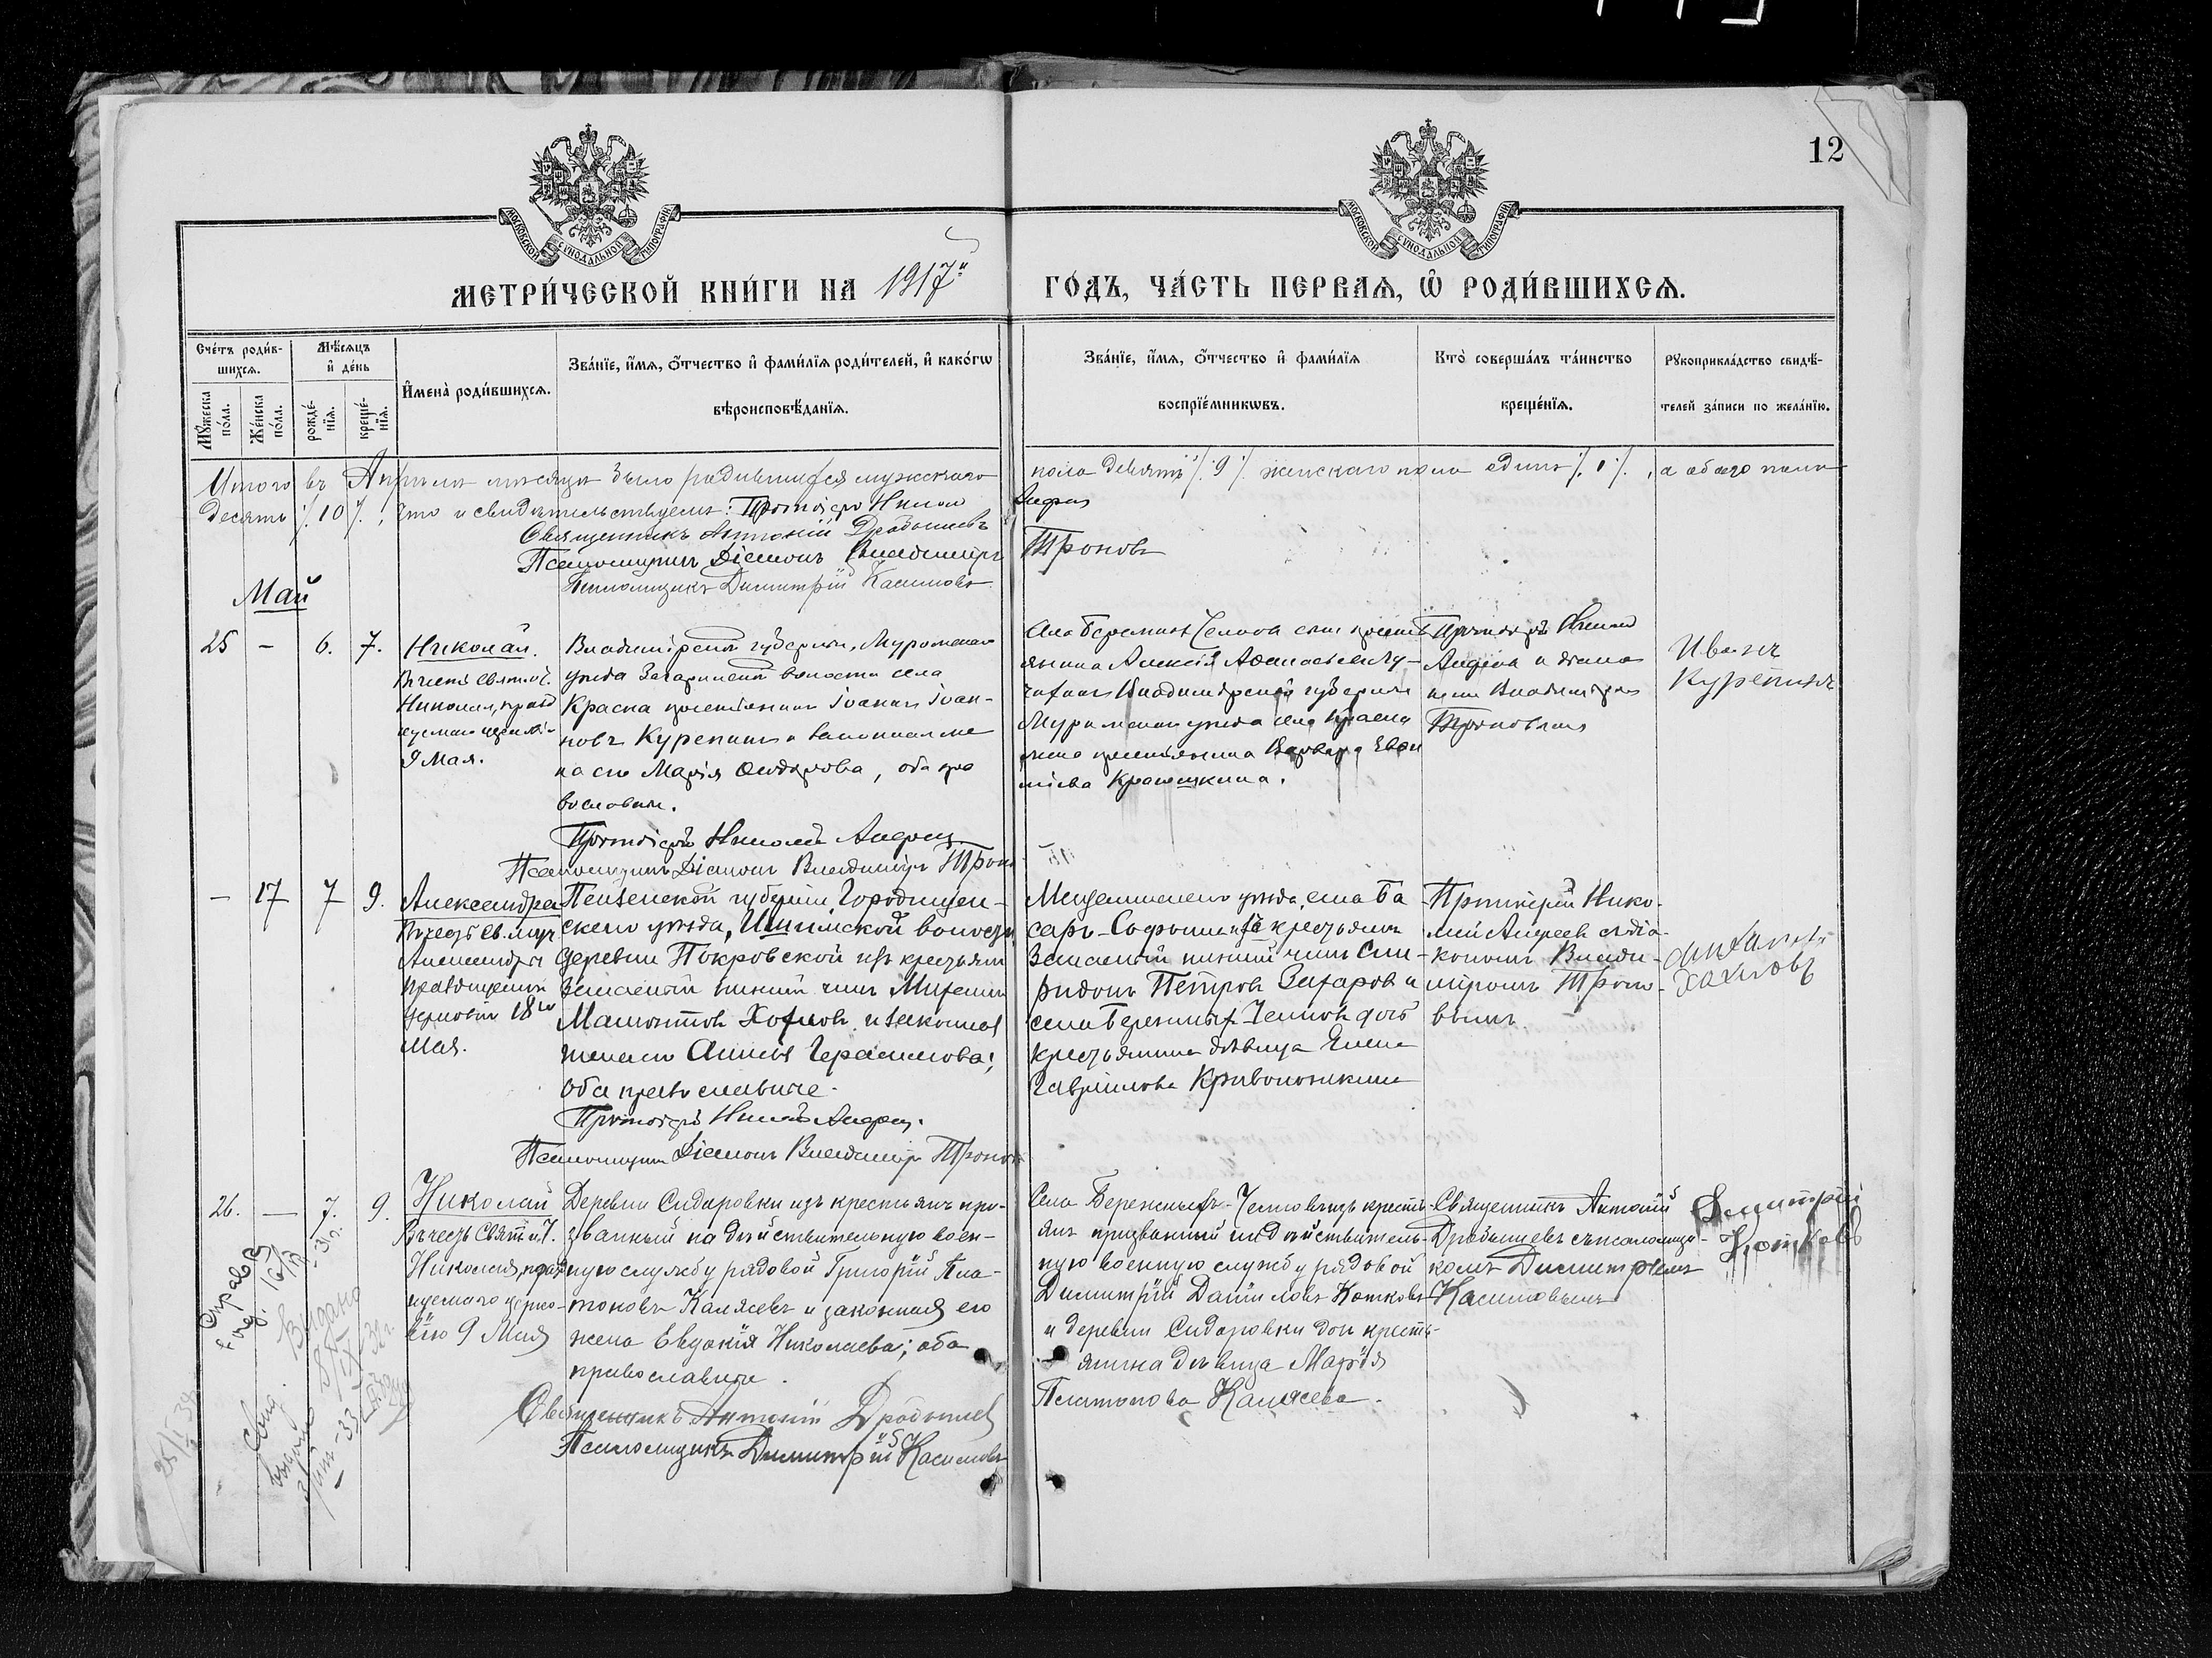 12
МОСКОВСКОЙ СѴНОДАЛЬНОЙ ТИПОГРАФІИ
МОСКОВСКОЙ СѴНОДАЛЬНОЙ ТИПОГРАФІИ
МЕТРИ́ЧЕСКОЙ КНИ́ГИ НА 1917й ГО́ДЪ, ЧА́СТЬ ПЕРВАѦ, Ѡ҆ РОДИ́ВШИХСѦ.
Сче́тъ роди́в-
шихсѧ.
Мꙋ́жеска по́ла.
Же́нска по́ла.
Мѣ́сѧцъ
и҆ де́нь
рожде́-
нїѧ.
креще́-
нїѧ.
И҆мена̀ роди́вшихсѧ.
Зва́нїе, и҆́мѧ, ѻ҆́тчество и҆ фами́лїѧ роди́телей, и҆ како́гѡ
вѣроисповѣ́данїѧ.
Зва́нїе, и҆́мѧ, ѻ҆́тчество и҆ фами́лїѧ
воспрїе́мникѡвъ.
Кто̀ соверша́лъ та́инство
креще́нїѧ.
Рꙋкоприкла́дство свидѣ́-
телей за́писи по жела́нїю.
Итого въ Апрѣлѣ мѣсяцѣ было родившихся мужскаго пола девять /.9./ женскаго пола одинъ /.1./, а обоего пола
десять /.10./, что и свидѣтельствуемъ: Протоіерей Николай Андреев
Священникъ Антоній Дробышевъ
Псаломщикъ Діаконъ Владиміръ Троновъ
Псаломщикъ Димитрій Касимовъ
Май
25 - 6. 7.
Николай.
Въ честь Святит.
Николая, празд
9 Мая.
Владимірской губерніи, Муромскаго
уѣзда Загаринской волости села
Красна крестьянинъ Іоаннъ Іоан-
новъ Курепинъ и законная же
на его Марія Ѳеодорова, оба пра
вославные.
Протоіерей Николай Андреев
Псаломщикъ Діаконъ Владиміръ Троновъ
крестья
янина Алексія Аѳанасьева Лу-
Владимірской губерніи
Муромскаго уѣзда села Красна
жена крестьянина Варвара Евси
Протоіерей Николай
Андреев и діако
номъ Владиміромъ
Троновымъ
Иванъ
Курепинъ
- 17 7 9.
Александра
Въ честь Св. муч
Александры
празднуемой
Церковію 18го
Мая.
Пензенской губерніи Городищен-
скаго уѣзда, Ишимской волости,
деревни Покровской изъ крестьян
запасной нижній чинъ Михаилъ
Мамонтов Хохлов и законная
жена его Анна Герасимова;
оба православные.
Протоіерей Николай Андреев.
Псаломщикъ Діаконъ Владиміръ Троновъ
уѣзда, села Ба
изъ крестьян
запасной нижній чинъ Спи-
ридонъ Петров Захаров и
села Бережныхъ-Челнов дочь
крестьянина дѣвица Елена
Гавриилова Кривоножкина
Протоіерей Нико-
лай Андреев съ діа-
кономъ Влади-
міромъ Троно-
вымъ
Михаилъ
Хохловъ
26. - 7. 9.
Николай
Въ честь Святит.
Николая, празд
нуемаго церко-
вію 9 Мая
Деревни Сидоровки изъ крестьянъ при-
званный на дѣйствительную воен-
ную службу рядовой Григорій Пла-
тоновъ Калясевъ и законная его
жена Евдокія Николаева; оба
православные.
Священникъ Антоній Дробышев
Псаломщикъ Димитрій Касимовъ
Села Бережныхъ-Челновъ изъ кресть-
янъ призванный на дѣйствитель-
ную военную службу рядовой
Димитрій Даниловъ Котковъ
и деревни Сидоровки дочь кресть-
янина дѣвица Марія
Платонова Калясева.
Священникъ Антоній
Дробышевъ съ псаломщи-
комъ Димитріемъ
Касимовымъ
Димитрій
Котковъ
Справка
Выдано